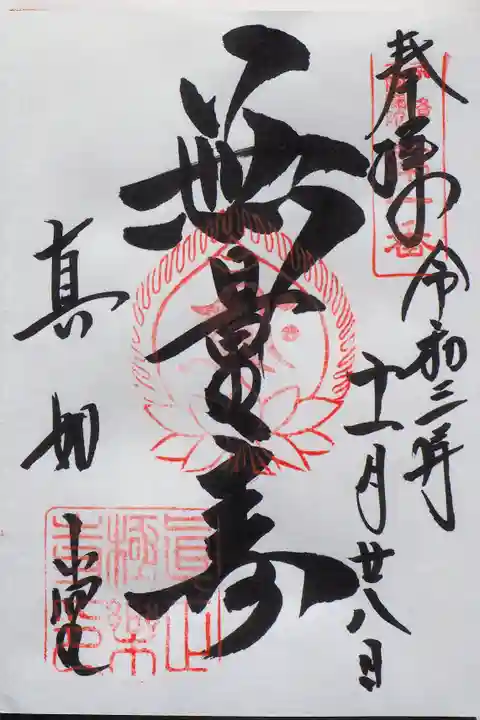 奉拝
令和三年
十一月廿八日
無量寿
真如堂
真正極楽寺印